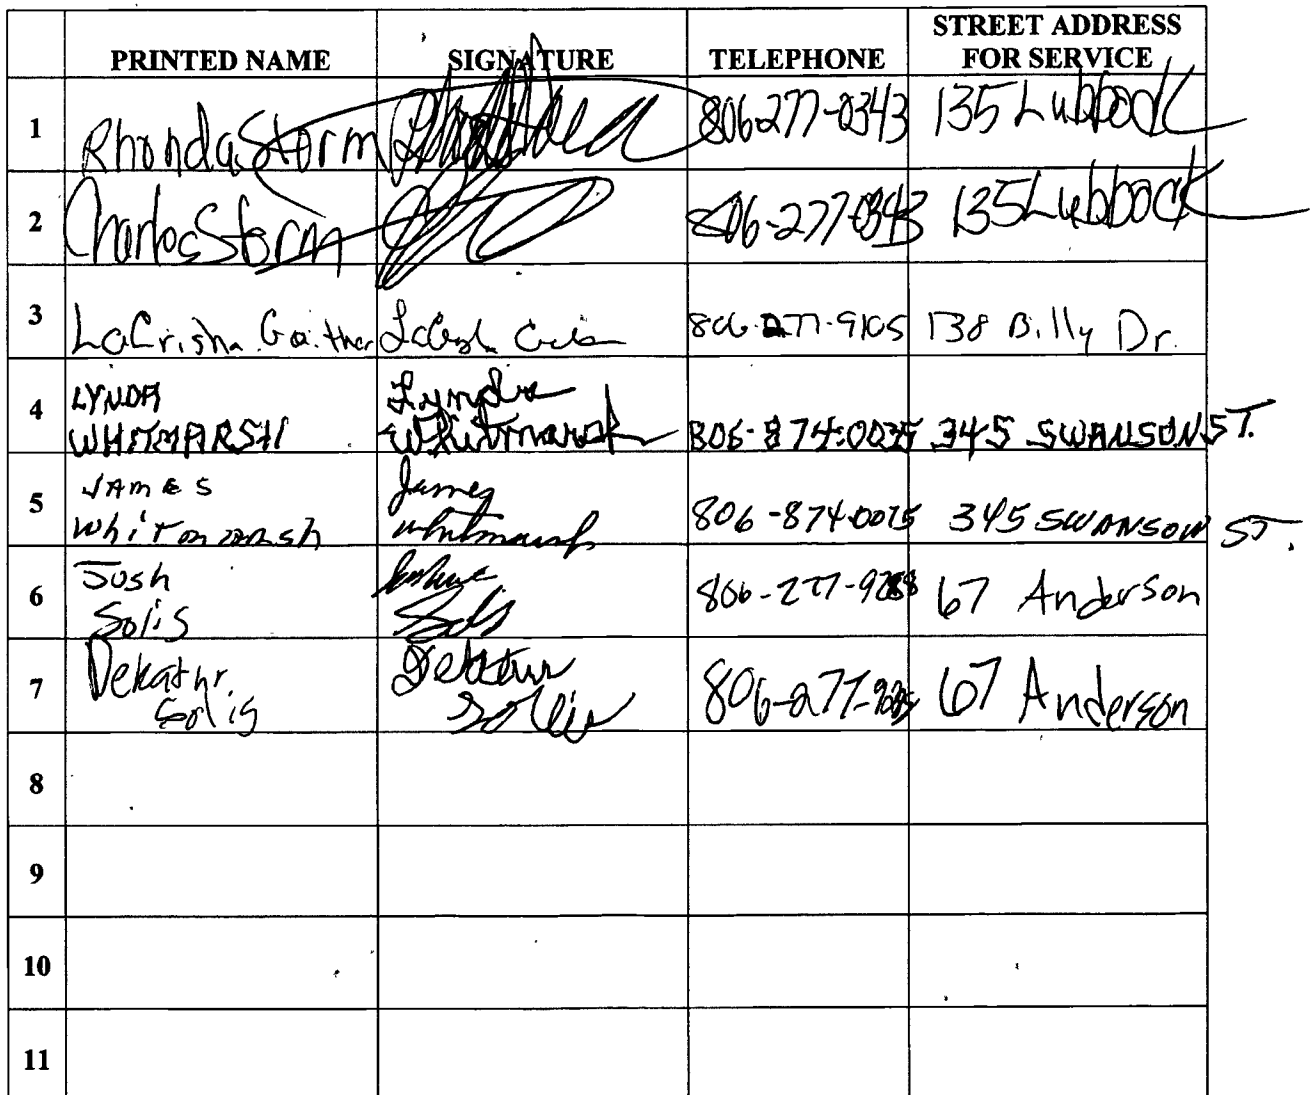 PRINTED NAME SIGNATURE TELEPHONE STREET ADDRESS FOR SERVICE
1 Rhonda Storm 806-277-0343 135 Lubbock
2 Charles Storm 806-277-0343 135 Lubbock
3 LaCrisha Gaither 806-277-9105 138 Billy Dr.
4 LYNDA Lynda
WHITMARSH Whitmarsh 806-874-0035 345 SWANSON ST.
5 JAMES James
Whitmarsh Whitmarsh 806-874-0075 345 SWANSON ST.
6 Josh
Solis Solis 67 Anderson
7 Dekathr.
Solis Sollis 67 Anderson
8
9
10
11